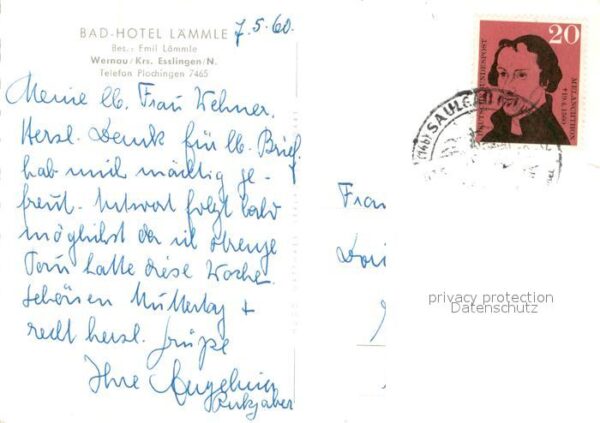 BAD-HOTEL LÄMMLE 7.5.60.
Bes.: Emil Lämmle
Wernau/Krs. Esslingen/N.
Telefon Plochingen 7465
Meine lb. Frau Wehner.
Herzl. Dank für lb. Brief,
hab mich mächtig ge-
freut. Antwort folgt bald
möglichst da ich strenge
Tour hatte diese Woche.
Schönen Muttertag +
recht herzl. Grüße
Ihre Angelina
20
DEUTSCHE BUNDESPOST
MELANCHTHON
†19.4.1560
(14b) SAULGAU
Frau
privacy protection
Datenschutz